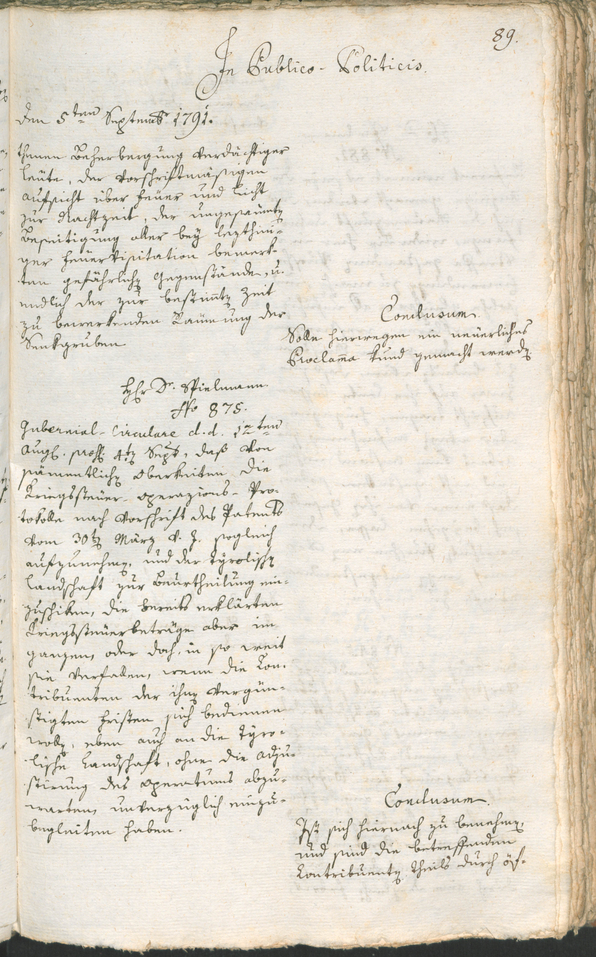 89.
In Publico-Politicis.
den 5ten Septemb. 1791.
thanen Beherbergung verdächtiger
leüte, der vorschriftmäßigen
aufsicht über feuer und licht
zur Nachtzeit, der ungesäumten
Beseitigung aller bey letzthin-
ger feuervisitation bemerk-
ten gefährlichen gegenstände, u.
endlich der zur bestimten Zeit
zu bewerkenden Räumung der
Senkgruben
Conclusum.
Solle hierwegen ein neüerliches
Proclama kund gemacht werden
Hhr Dr. Spielmann
No 875.
Gubernial-Circulare d.d. 12ten
Aug. 4ten Sept., daß von
sämmentlichen Oberkeiten die
Kriegssteüer-operazions-Pro-
tokolle nach Vorschrift des Patents
vom 30ten März d. J. sogleich
aufzunehmen, und der tyrolischen
landschaft zur Beurtheilung ein-
zuschiken, die bereits erklärten
Kriegssteüerbeträge aber im
ganzen, oder doch in so weit
sie verfallen, wenn die Con-
tribuenten der ihnen vergün-
stigten fristen sich bedienen
wollen, eben auch an die Tyro-
lische Landschaft, ohne die adju-
stirung des operatums abzu-
warten, unverzüglich einzu-
begleiten haben.
Conclusum.
Ist sich hiernach zu benehmen,
und sind die betreffenden
Contribuenten theils durch öf-